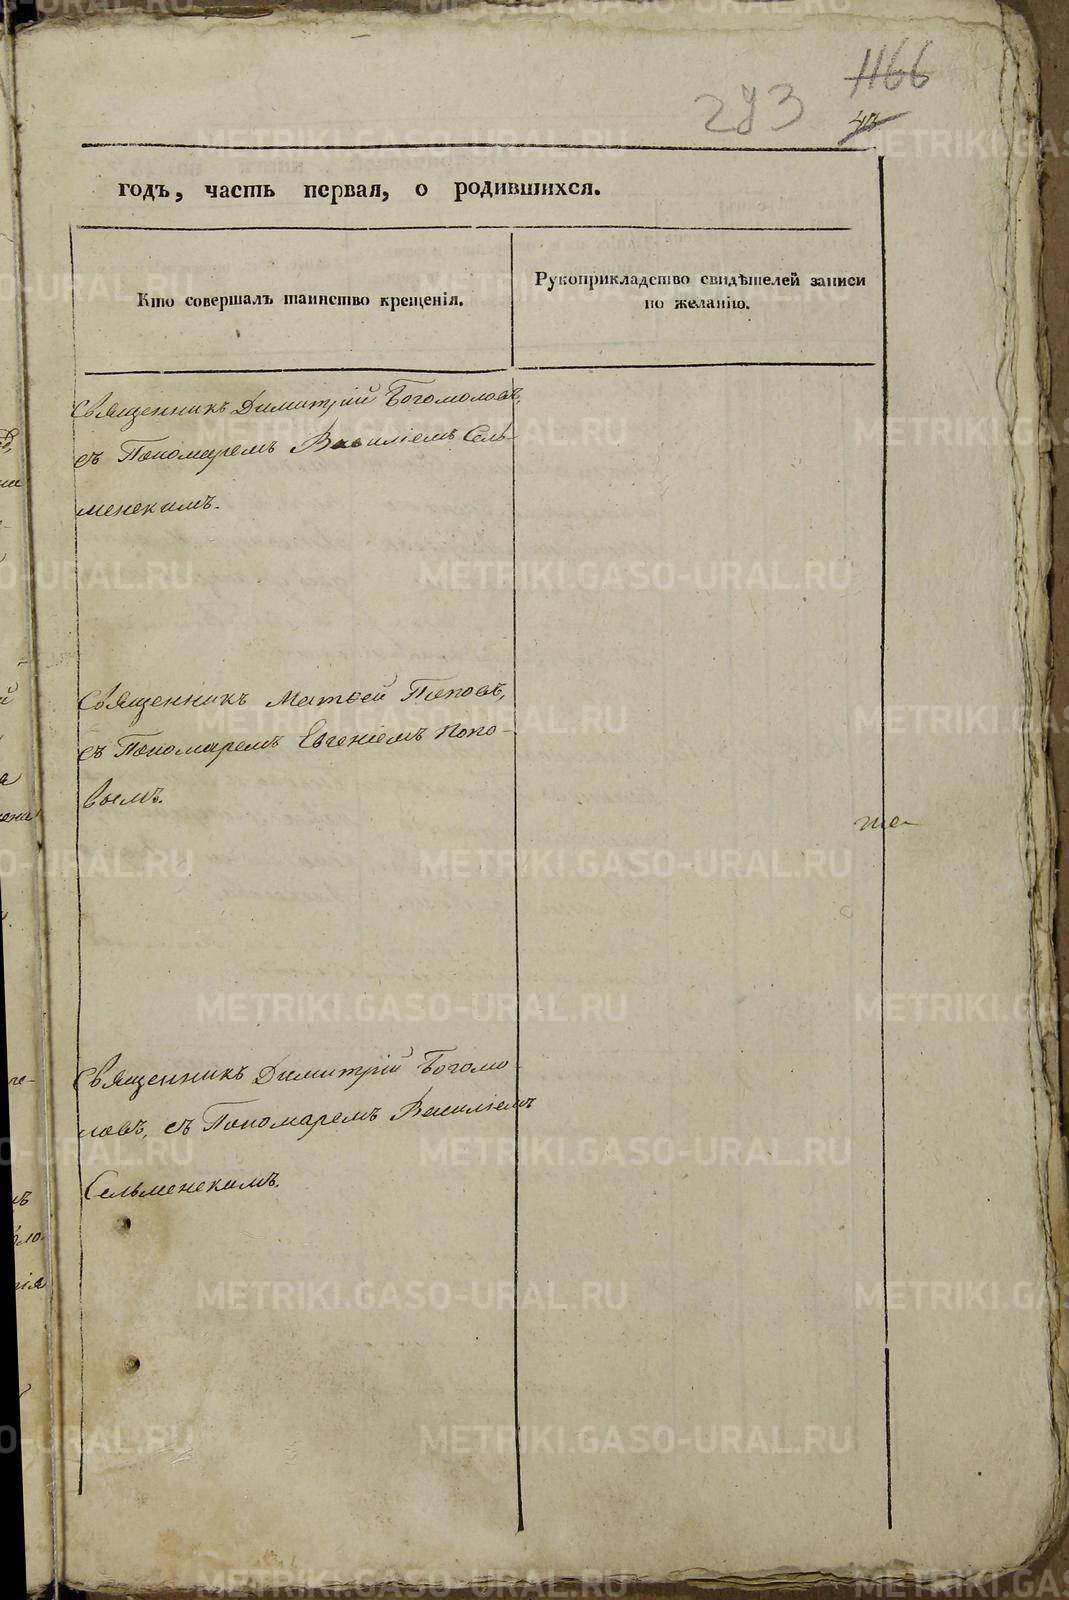 1166
293
годъ, часть первая, о родившихся.
Кто совершалъ таинство крещенія.
Рукоприкладство свидѣтелей записи
по желанію.
Священникъ Димитрій Богомоловъ,
съ Пономаремъ Василіемъ Сель-
менскимъ.
Священникъ Матвей Поповъ,
съ Пономаремъ Евгеніемъ Попо-
вымъ.
Священникъ Димитрій Богомо-
ловъ, съ Пономаремъ Василіемъ
Сельменскимъ.
METRIKI.GASO-URAL.RU